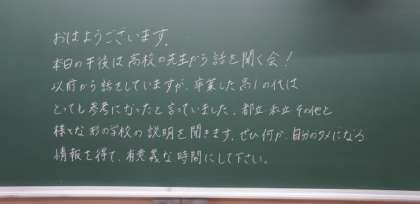 おはようございます。
本日の午後は高校の先生から話を聞く会!
以前から話をしていますが、卒業した高1の代は
とっても参考になったと言っていました。都立 私立 その他と
様々な形の学校の説明を聞きます。ぜひ何か、自分のタメになる
情報を得て、有意義な時間にして下さい。